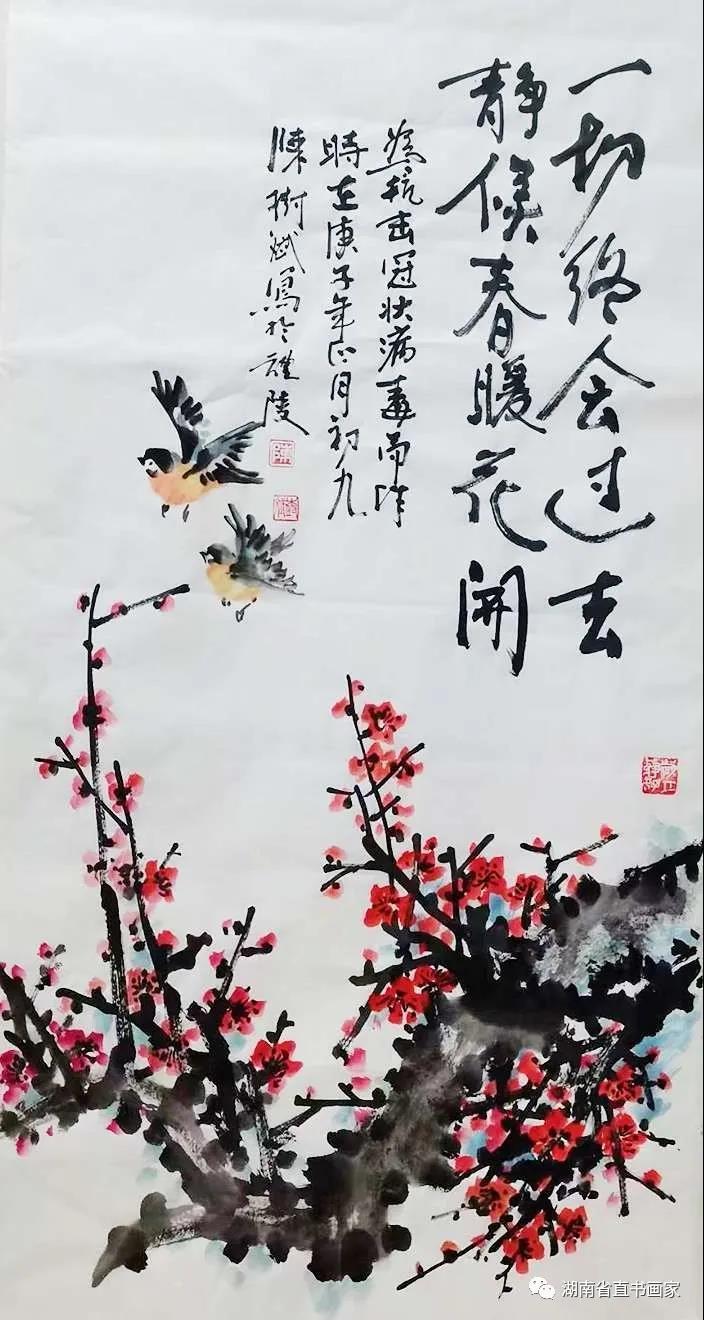 一切终会过去
静候春暖花开
為抗击冠状病毒而作
時在庚子年正月初九
陳樹斌寫於醴陵
湖南省直书画家